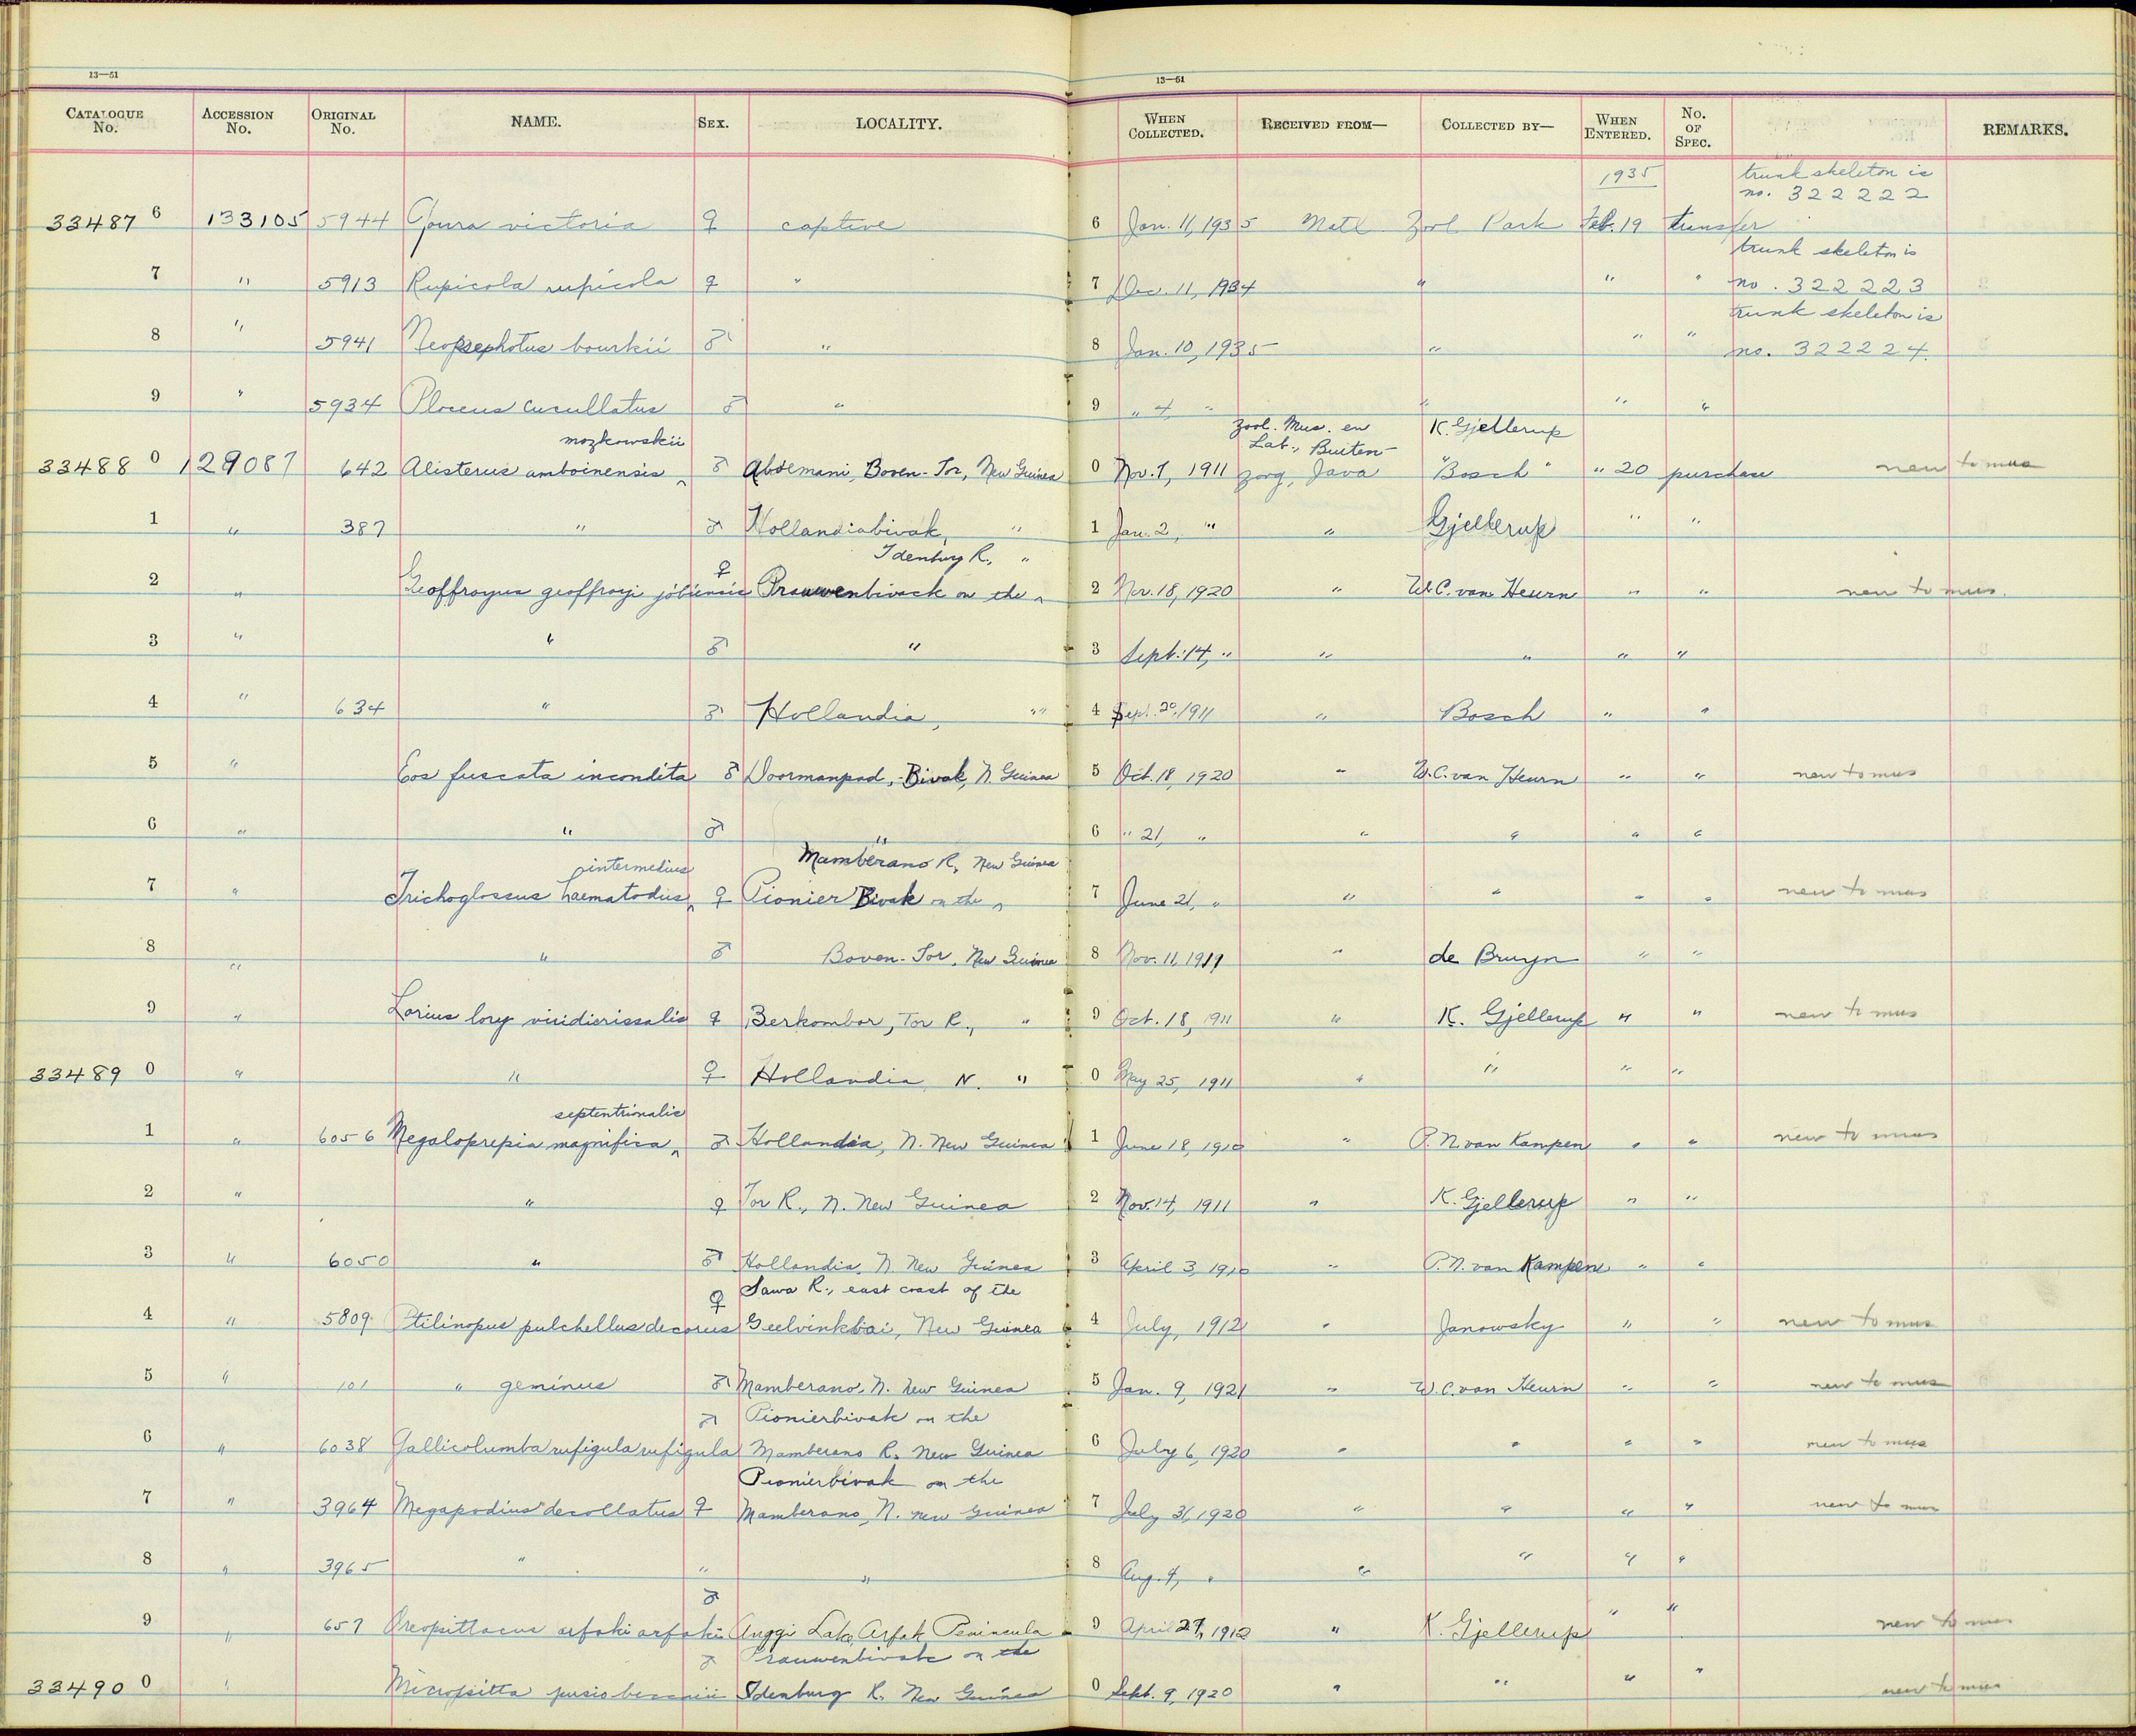 13—51
13—51
CATALOGUE No. ACCESSION No. ORIGINAL No. NAME. SEX. LOCALITY. WHEN COLLECTED. RECEIVED FROM— COLLECTED BY— WHEN ENTERED. No. OF SPEC. REMARKS.
1935 trunk skeleton is
no. 322222
33487 6 133105 5944 Goura victoria ♀ captive 6 Jan. 11, 1935 Natl Zool Park Feb. 19 transfer
trunk skeleton is
7 " 5913 Rupicola rupicola ♀ " 7 Dec. 11, 1934 " " " no. 322223
trunk skeleton is
8 " 5941 Neopsephotus bourkii ♂ " 8 Jan. 10, 1935 " " " no. 322224.
9 " 5934 Ploceus cucullatus ♂ " 9 " 4, " " " "
mozkowskii Zool. Mus. en K. Gjellerup
Lab., Buiten-
33488 0 129087 642 Alisterus amboinensis ^ ♂ Abdemani, Boven-Tor, New Guinea 0 Nov. 7, 1911 zorg, Java "Bosch" " 20 purchase new to mus
1 " 387 " ♂ Hollandiabivak, " 1 Jan. 2, " " Gjellerup " "
Idenburg R., "
2 " Geoffroyus geoffroyi jobiensis ♀ Prauwenbivack on the ^ 2 Nov. 18, 1920 " W.C. van Heurn " " new to mus.
3 " " ♂ " 3 Sept. 14, " " " " "
4 " 634 " ♂ Hollandia, " " 4 Sept. 20, 1911 " Bosch " "
5 " Eos fuscata incondita ♂ Doormanpad,-Bivak, N. Guinea 5 Oct. 18, 1920 " W.C. van Heurn " " new to mus
6 " " ♂ " 6 " 21, " " " " "
intermedius Mamberano R, New Guinea
7 " Trichoglossus haematodus ^ ♀ Pionier Bivak on the ^ 7 June 21, " " " " " new to mus
8 " " ♂ Boven-Tor, New Guinea 8 Nov. 11, 1911 " de Bruyn " "
9 " Lorius lory viridicrissalis ♀ Berkombor, Tor R., " 9 Oct. 18, 1911 " K. Gjellerup " " new to mus
33489 0 " " ♀ Hollandia, N. " 0 May 25, 1911 " " " "
septentrionalis
1 " 6056 Megaloprepia magnifica ^ ♂ Hollandia, N. New Guinea 1 June 18, 1910 " P.N. van Kampen " " new to mus
2 " " ♀ Tor R., N. New Guinea 2 Nov. 14, 1911 " K. Gjellerup " "
3 " 6050 " ♂ Hollandia, N. New Guinea 3 April 3, 1910 " P.N. van Kampen " "
Sawa R., east coast of the
4 " 5809 Ptilinopus pulchellus decorus ♀ Geelvinkbai, New Guinea 4 July, 1912 " Janowsky " " new to mus
5 " 101 " geminus ♂ Mamberano, N. New Guinea 5 Jan. 9, 1921 " W.C. van Heurn " " new to mus
Pionierbivak on the
6 " 6038 Gallicolumba rufigula rufigula ♂ Mamberano R. New Guinea 6 July 6, 1920 " " " " new to mus
Pionierbivak on the
7 " 3964 Megapodius decollatus ♀ Mamberano, N. New Guinea 7 July 31, 1920 " " " " new to mus
8 " 3965 " " " 8 Aug. 4, " " " " "
9 " 657 Oreopsittacus arfaki arfaki ♂ Anggi Lake, Arfak Peninsula 9 April 27, 1912 " K. Gjellerup " " new to mus
Prauwenbivak on the
33490 0 " Micropsitta pusio beccarii ♂ Idenburg R. New Guinea 0 Sept. 9, 1920 " " " " new to mus